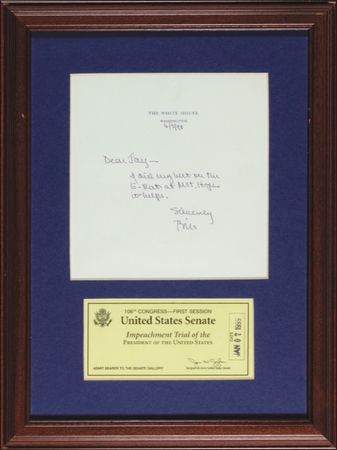 THE WHITE HOUSE
WASHINGTON
Dear Jay—
I did my best on the
E-Rate at MIT. Hope
it helps.
Sincerely
Bill
106TH CONGRESS—FIRST SESSION
United States Senate
Impeachment Trial of the
PRESIDENT OF THE UNITED STATES
ADMIT BEARER TO THE SENATE GALLERY
DATE
JAN 07 1999